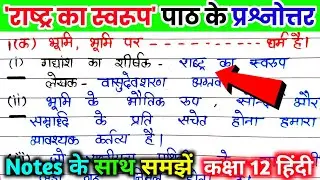 'राष्ट्र का स्वरूप' पाठ के प्रश्नोत्तर
1(क) भूमि, भूमि पर - - - - - - - - - - धर्म है।
(i) गद्यांश का शीर्षक - राष्ट्र का स्वरूप
लेखक - वासुदेवशरण अग्रवा
(ii) भूमि के भौतिक रूप, और
के प्रति सचेत होना हमारा
आवश्यक कर्तव्य है।
Notes के साथ समझें कक्षा 12 हिंदी